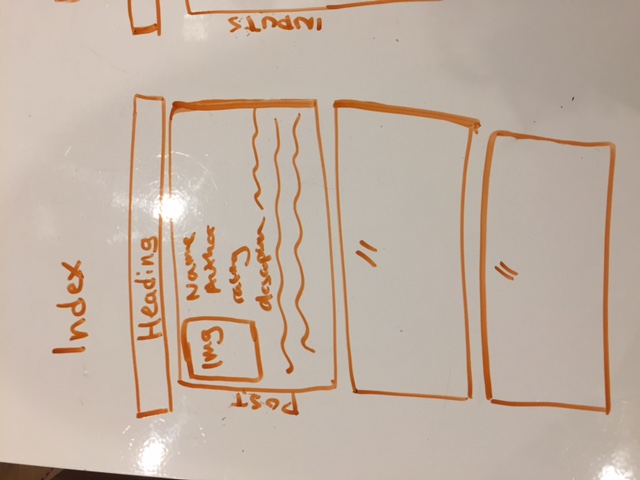 Index
Heading
POST
Img
Name
Author
rating
INPUTS